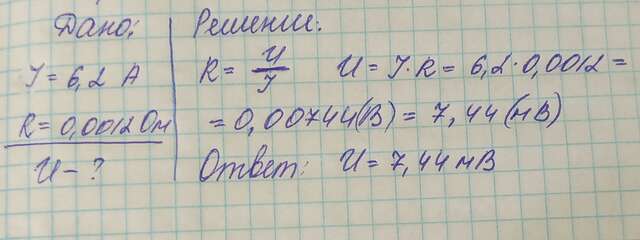 Дано:
I = 6,2 А
R = 0,0012 Ом
U - ?
Решение:
R = U/I U = I · R = 6,2 · 0,0012 =
= 0,00744 (В) = 7,44 (мВ)
Ответ: U = 7,44 мВ